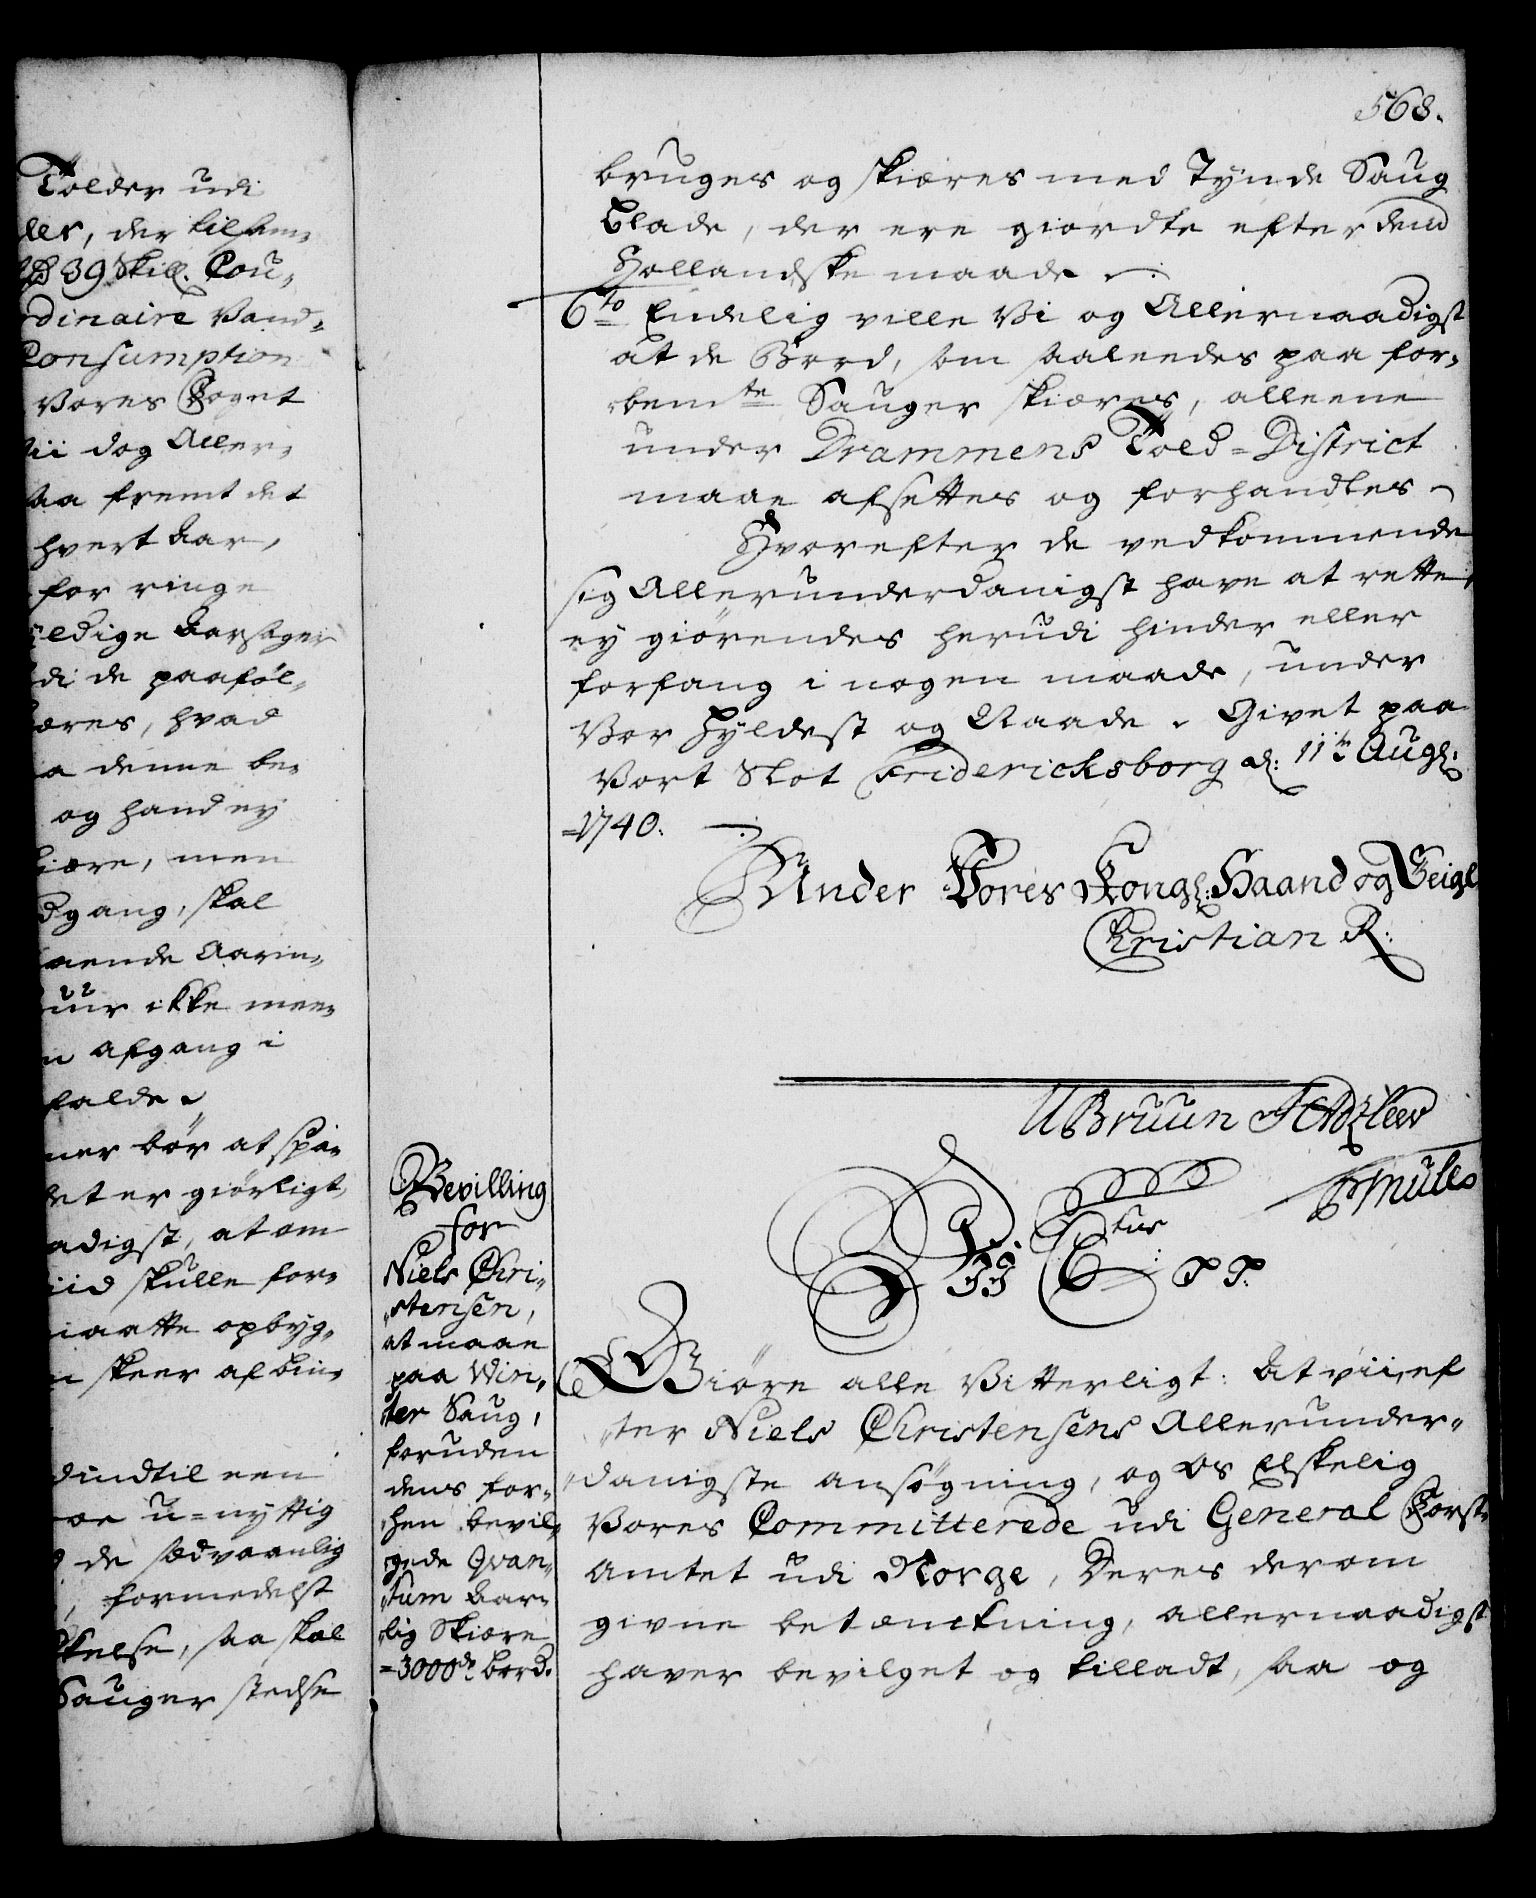 568.
Tolder udi
ler, der tilsam-
39 Skill. Cou-
dinaire Vand-
Consumption
Vores Foget
Vii dog Aller-
saa fremt det
hvert Aar,
for ringe
yldige Aarsager
di de paaføl-
æres, hvad
a denne be-
og hand ey
kiære, men
dgang, skal
aende Aarin-
uur ikke mee-
n afgang i
falde
ner bør at spa-
det er giørligt,
adigst, at om
iid skulle for-
iaatte opbyg-
n skeer af bin-
dindtil een
oe u-nyttig
de sædvaanlig
, formedelst
kelse, saa skal
Sauger stedse
bruges og skiæres med Tynde Saug
blade, der ere giordte efter dend
Hollandske maade
6to Endelig ville Vi og Allernaadigst
at de Bord, som saaleedes paa for-
bemte Sauger skiæres, alleene
under Drammens Told-District
maae afsettes og forhandles
Hvorefter de vedkommende
sig Allerunderdanigst have at rette,
ey giørendes herudi hinder eller
forfang i nogen maade, under
Vor Hyldest og Naade. Givet paa
Vort Slot Fridericksborg d: 11te Aug:
1740.
Under Vores Kongl: Haand og Seigl
Christian R:
UBruun
Bevilling
for
Niels Chri-
stensen,
at maae
paa Win-
ter Saug,
foruden
dens for-
hen bevil-
gede Qvan-
tum Aar-
lig Skiære
3000de bord.
C tus PP.
Giøre alle Vitterligt: At vii, ef
ter Niels Christensens Allerunder-
danigste ansøgning, og Os Elskelig
Vores Committerede udi General Forst
Amtet udi Norge, Deres derom
givne betænckning, allernaadigst
haver bevilget og tilladt, saa og